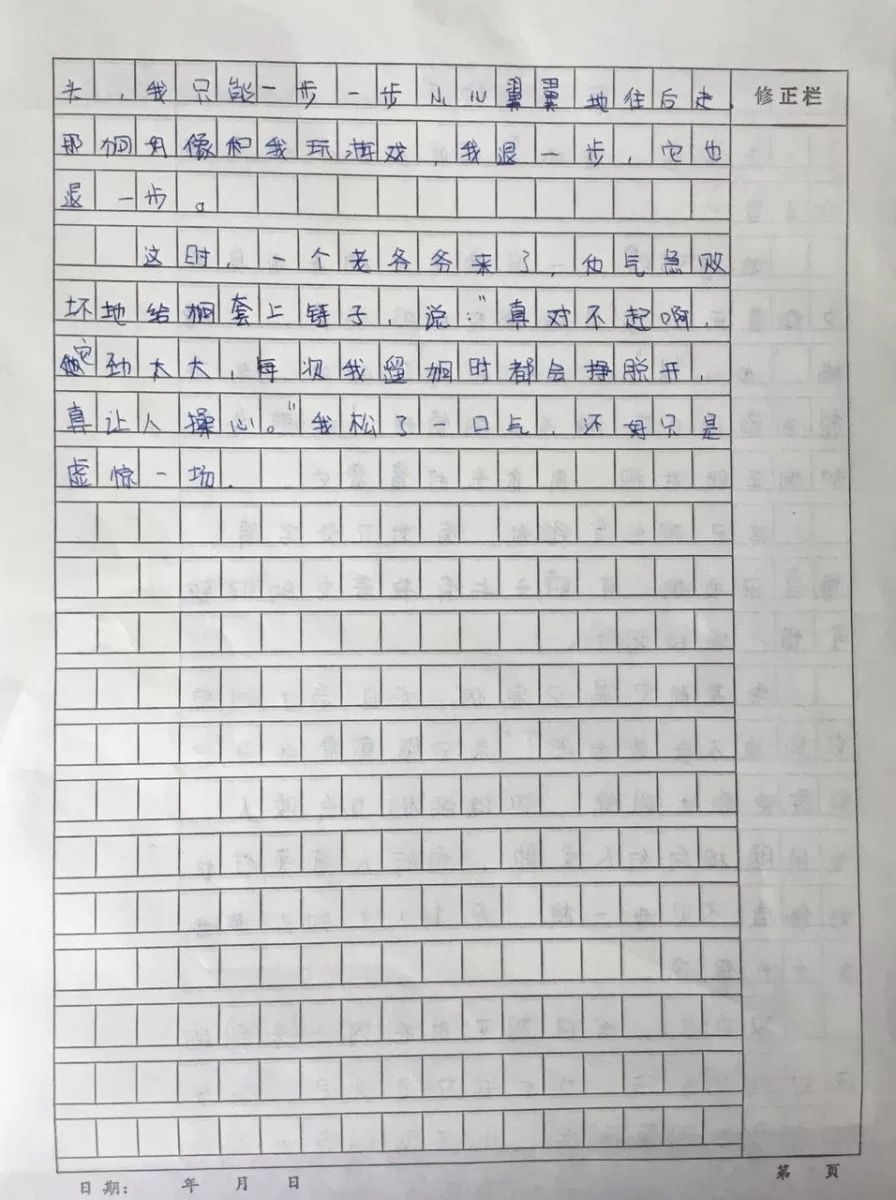 头,我只能一步一步小心翼翼地住后走. 修正栏
那狗好像和我玩游戏,我退一步,它也
退一步。
这时,一个老爷爷来了,他气急败
坏地给狗套上链子,说:“真对不起啊,
它劲太大,每次我留狗时都会挣脱开,
真让人操心。”我松了一口气,还好只是
虚惊一场.
日期: 年 月 日 第 页